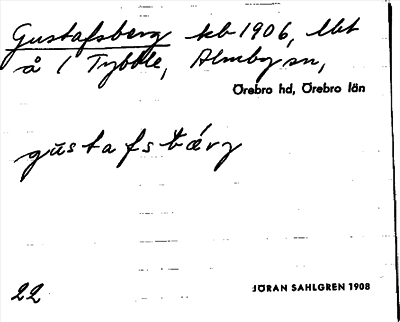 Gustafsberg kb 1906, lht
å 1 Tybble, Almby sn,
Örebro hd, Örebro län
gustafsbärg
22
JÖRAN SAHLGREN 1908